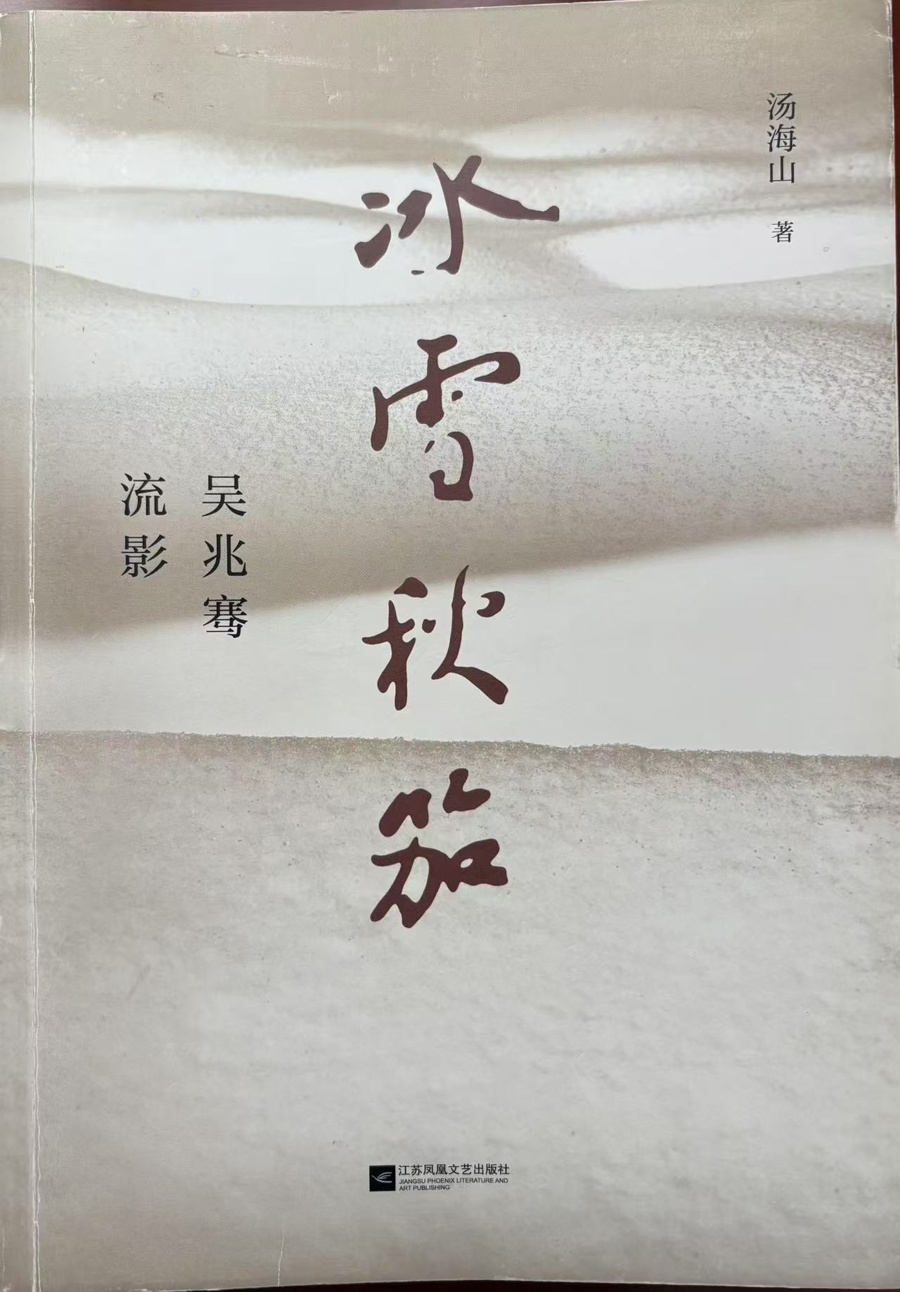 汤海山 著
冰雪秋笳
吴兆骞
流影
江苏凤凰文艺出版社
JIANGSU PHOENIX LITERATURE AND
ART PUBLISHING